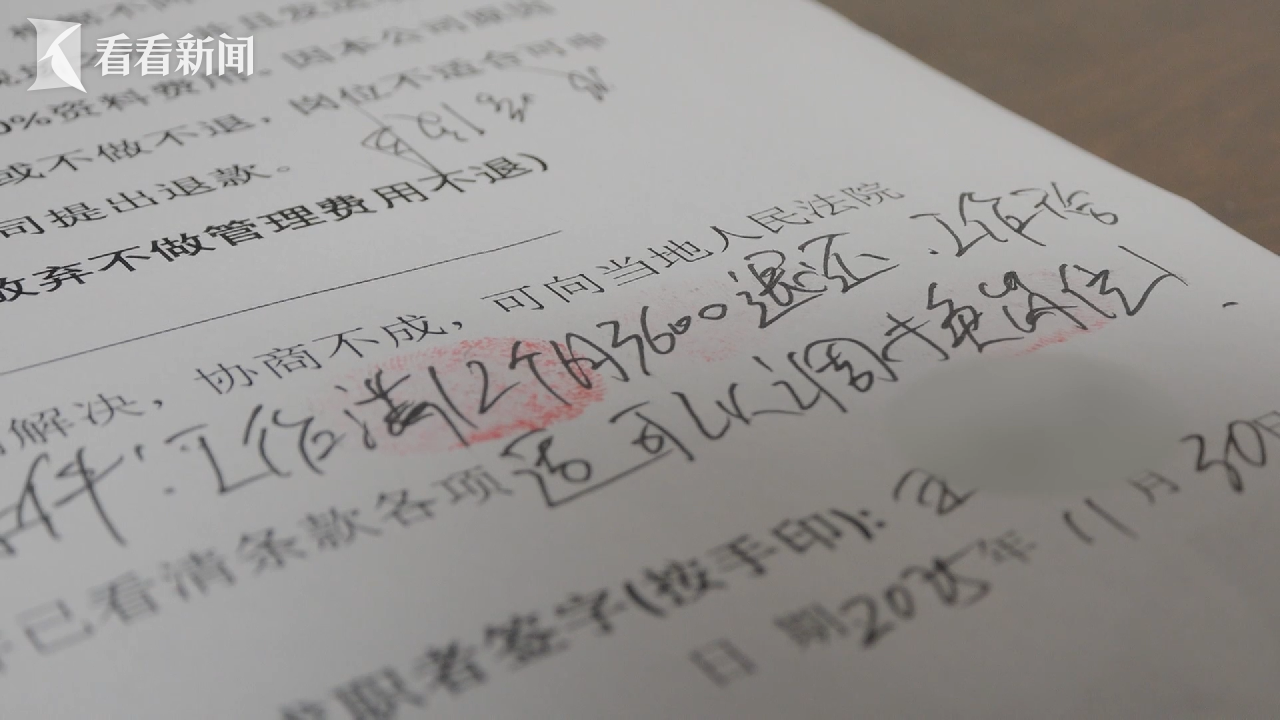 看看新闻
0%资料费用，因本公司原因
或不做不退，岗位不适合可申
司提出退款。
放弃不做管理费用不退)
解决，协商不成，可向当地人民法院
工作满12个月3600退还.工作不
已看清条款各项 适可以调换更岗位
求职者签字(按手印):
日 期2025年 11月30日